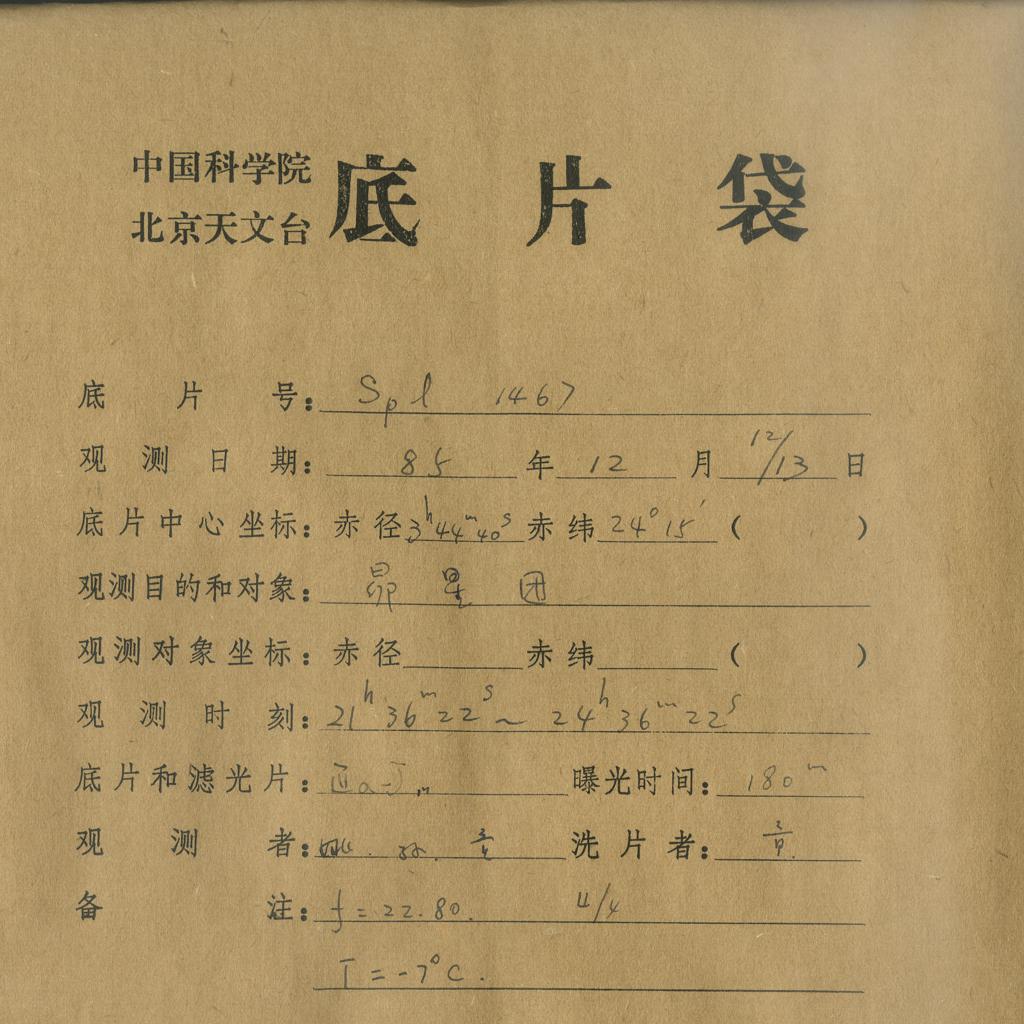 中国科学院
北京天文台
底片袋
底片号： Spl 1467
观测日期： 85 年 12 月 12/13 日
底片中心坐标：赤径 3ʰ44ᵐ40ˢ 赤纬 24°15′ （ ）
观测目的和对象： 昴星团
观测对象坐标：赤径 赤纬 （ ）
观测时刻： 21ʰ36ᵐ22ˢ ~ 24ʰ36ᵐ22ˢ
底片和滤光片： 曝光时间： 180ᵐ
观测者： 姚. 孙. 洗片者：
备注： f = 22.80. 4/4
T = -7°C.